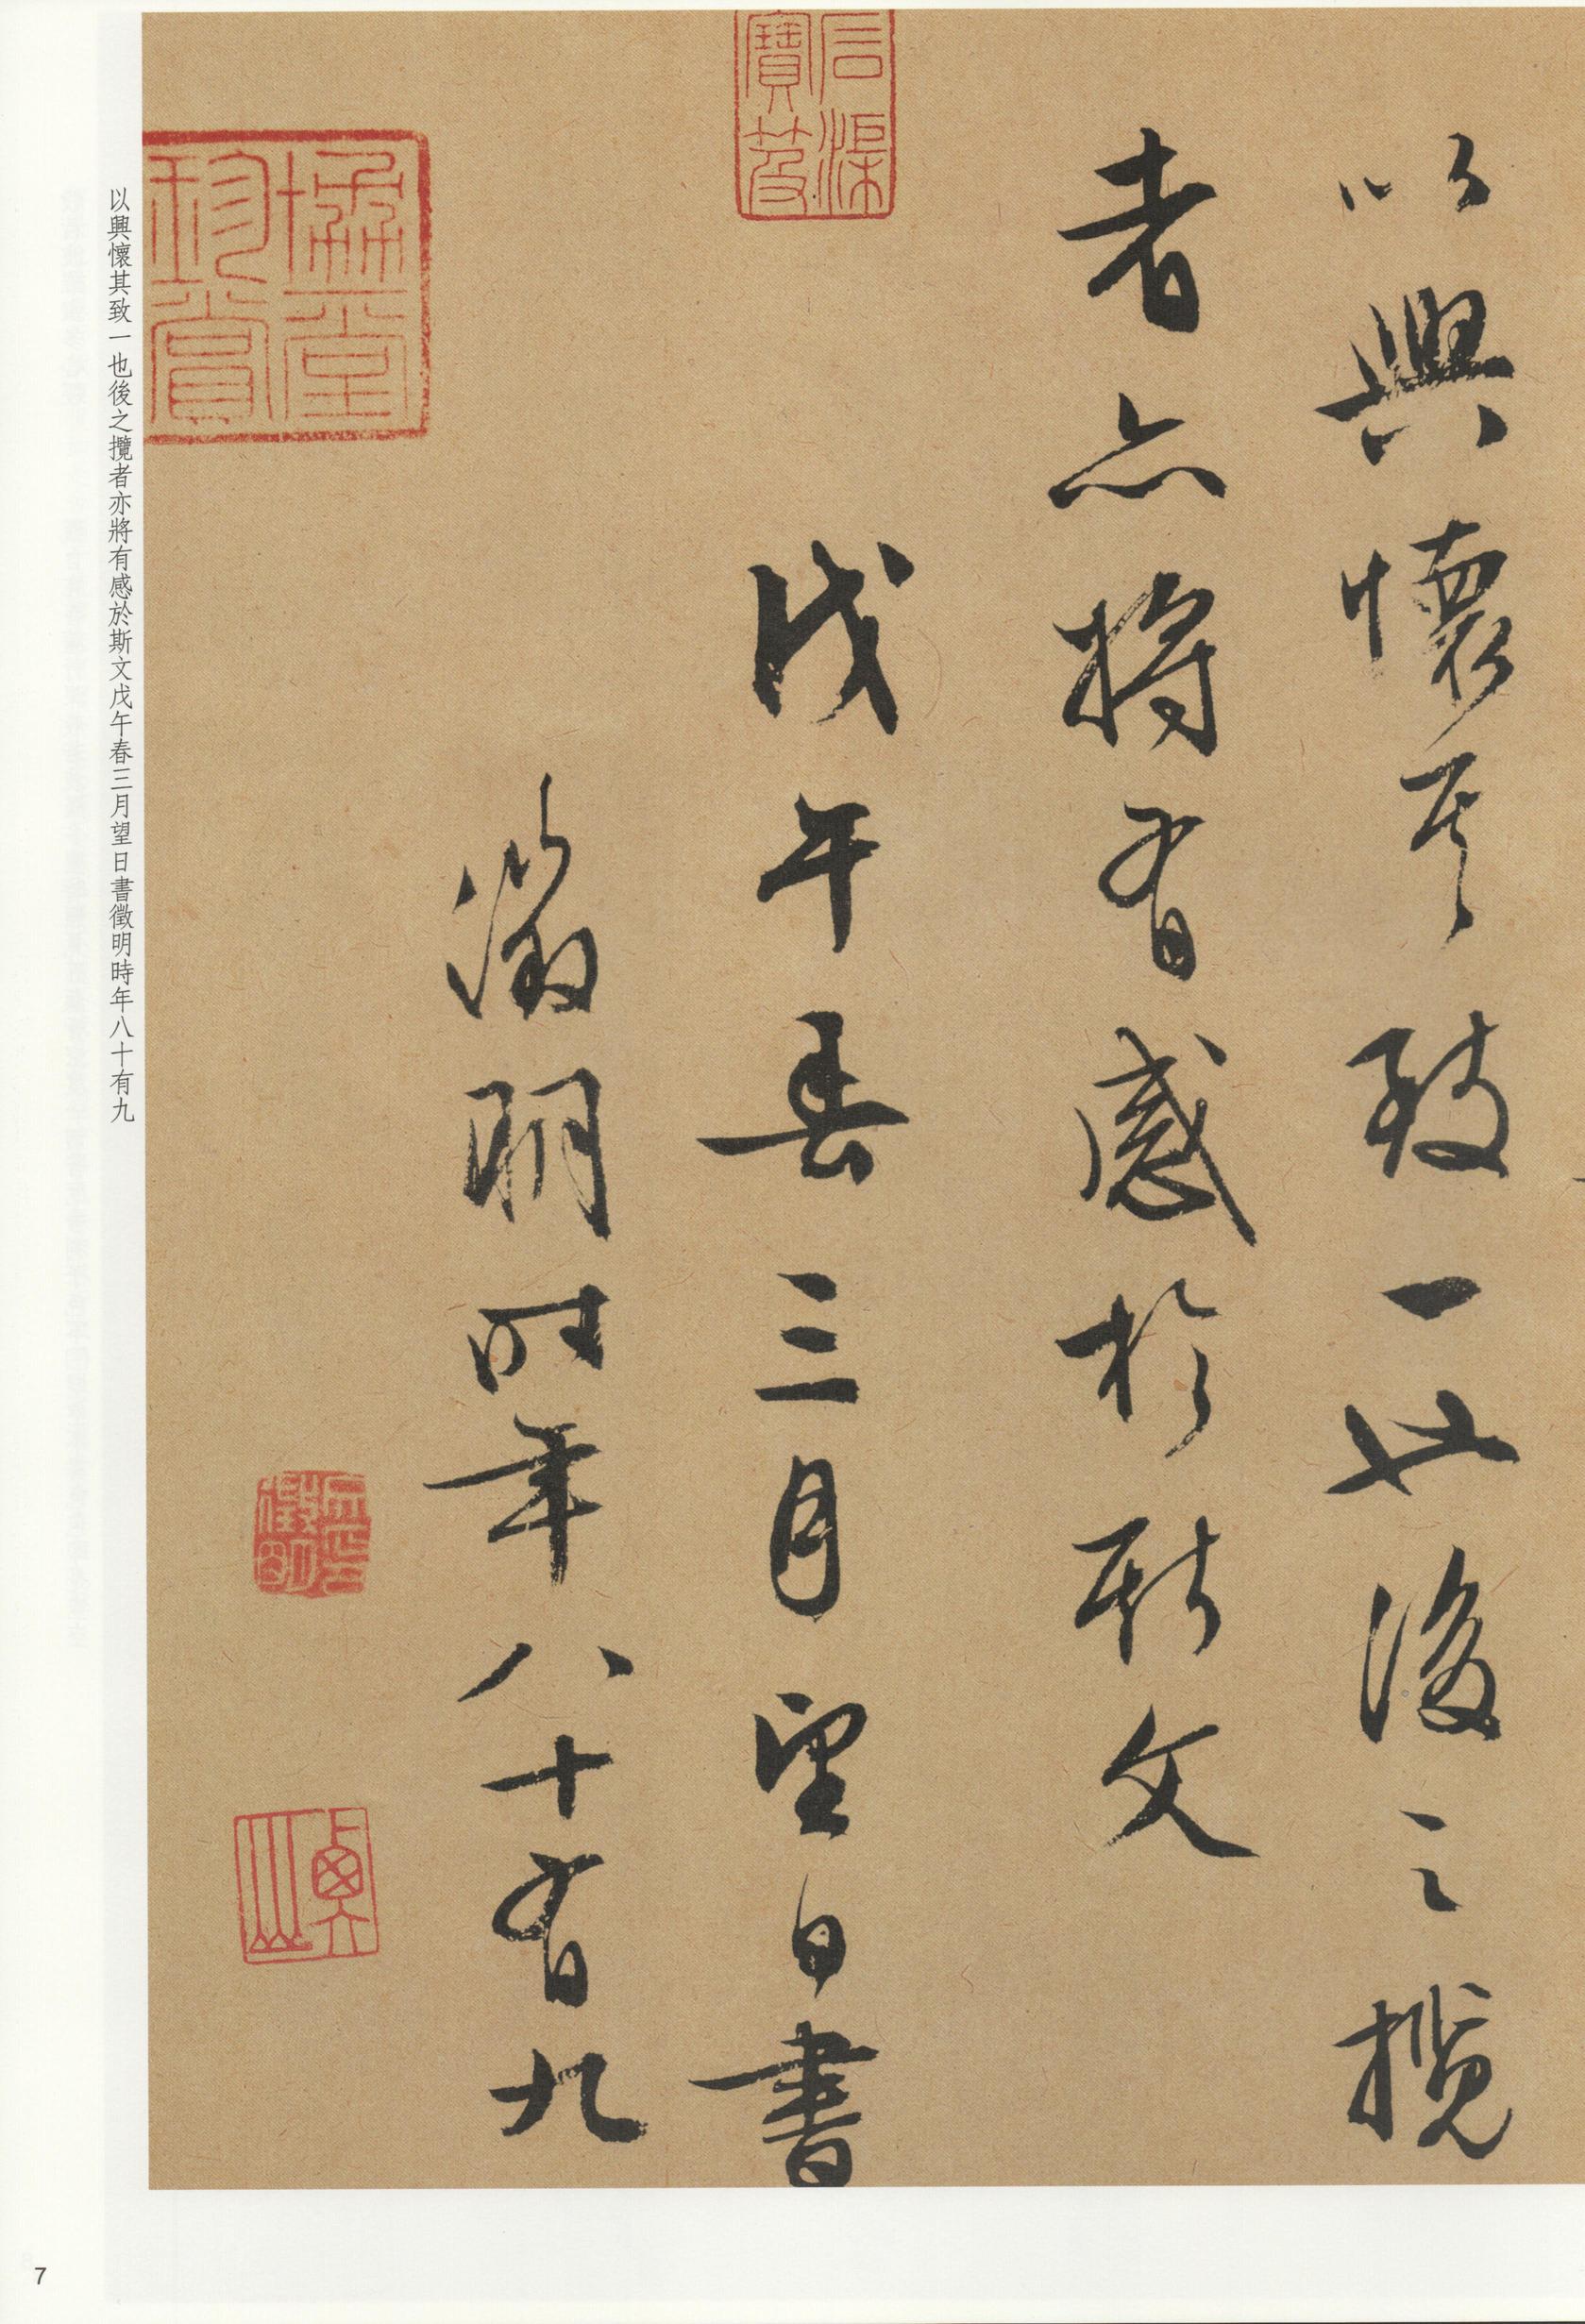 以興懷其致一也後之攬
者亦將有感於斯文
戊午春三月望日書
徵明時年八十有九
石渠寶笈
協堂珍賞
以興懷其致一也後之攬者亦將有感於斯文戊午春三月望日書徵明時年八十有九
7